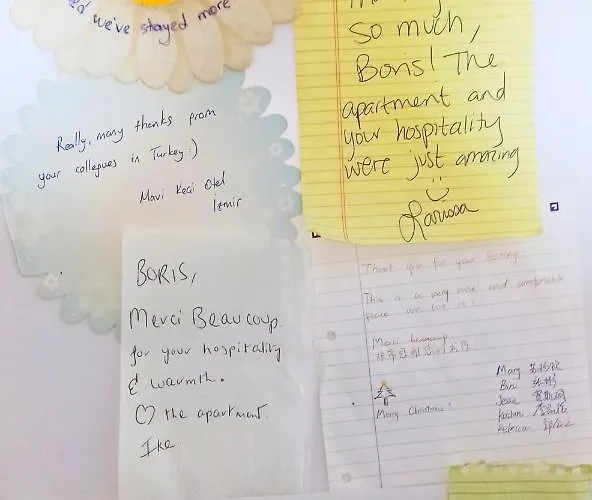 we've stayed more
Really, many thanks from
your collegues in Turkey :)
Mavi Keci Otel
izmir
so much,
Boris! The
apartment and
your hospitality
were just amazing
Larissa
BORIS,
Merci Beaucoup
for your hospitality
& warmth.
♡ the apartment.
Ike
Thank you for your
This is a very nice and comfortable
place we live in!
Merci beaucoup
Merry Christmas!
Mary
Jesse
Rebecca